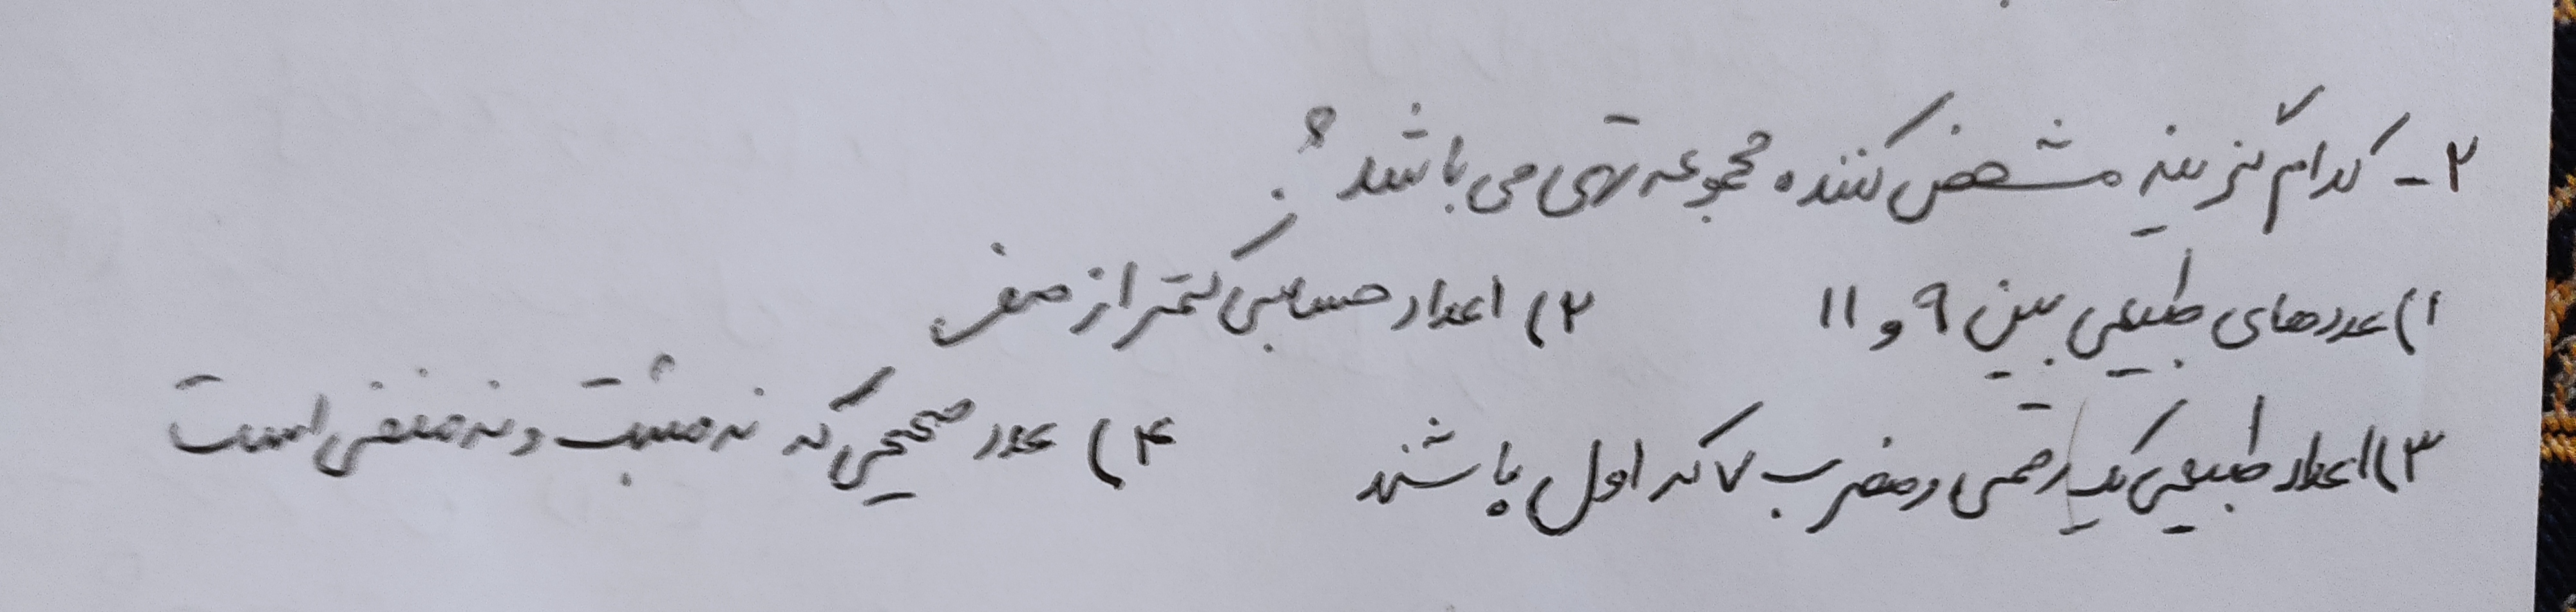 ۲- کدام گزینه مشخص کننده مجموعه تهی می باشد؟
۱) عددهای طبیعی بین ۹ و ۱۱ ۲) اعداد حسابی کمتر از صفر
۳) اعداد طبیعی یک رقمی و مضرب ۷ که اول باشند ۴) عدد صحیحی که نه مثبت و نه منفی است